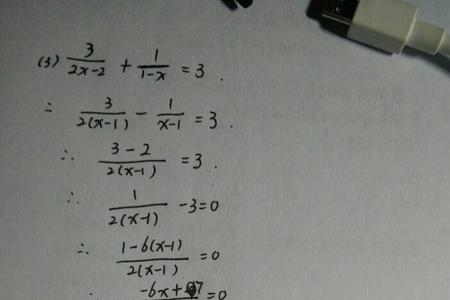 (3) 3/(2x-2) + 1/(1-x) = 3 .
∴ 3/(2(x-1)) - 1/(x-1) = 3 .
∴ (3-2)/(2(x-1)) = 3 .
∴ 1/(2(x-1)) - 3 = 0
∴ (1-6(x-1))/(2(x-1)) = 0
-6x+7 = 0